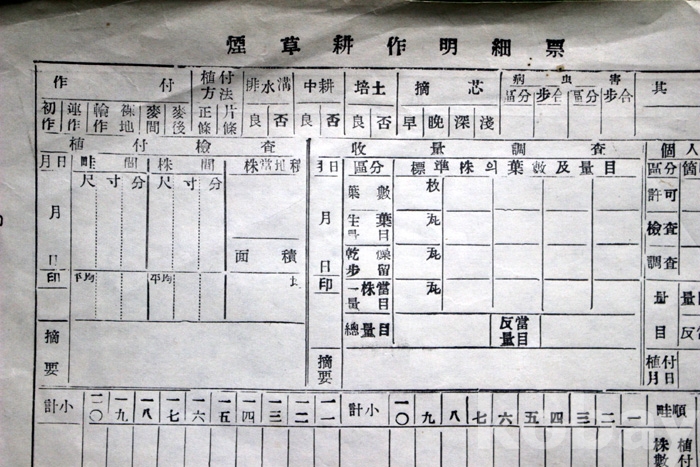 煙草耕作明細票
作付 植付方法 排水溝 中耕 培土 摘芯 病虫害 其
初作 連作 輪作 裸地 麥間 麥後 正條 片條 良 否 良 否 良 否 早 晩 深 淺 區分 步合 區分 步合
植付檢査 收量調査 個人
月日 畦間 株間 株當地積 月日 區分 標準株의葉數及量目 區分 箇
尺寸分 尺寸分 葉數 枚 許可
月 月 生葉量目 瓦 檢査
日 面積 日 乾燥步留 瓦 調査
印 平均 平均 印 一株當量目 瓦 量目 量 反
總量目 反當量目
摘要 摘要 植付月日
小計 二〇 一九 一八 一七 一六 一五 一四 一三 一二 一一 小計 一〇 九 八 七 六 五 四 三 二 一 畦順
株數 植付
kobay